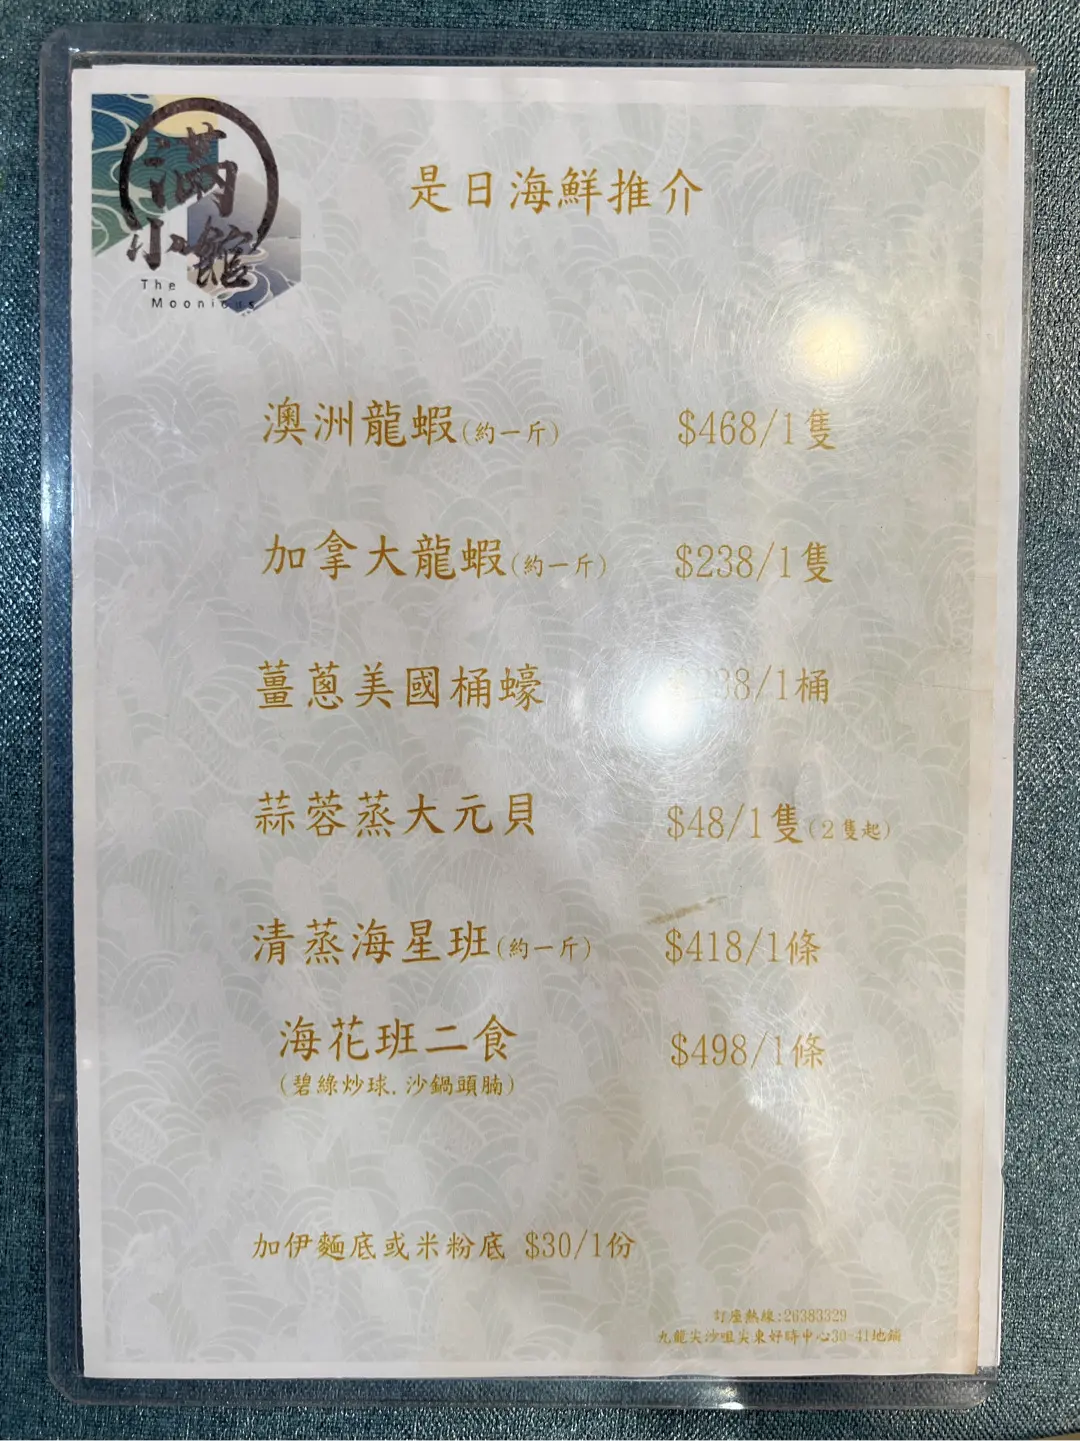 滿
小館
The
是日海鮮推介
澳洲龍蝦(約一斤) $468/1隻
加拿大龍蝦(約一斤) $238/1隻
薑蔥美國桶蠔 /1桶
蒜蓉蒸大元貝 $48/1隻(2隻起)
清蒸海星班(約一斤) $418/1條
海花班二食 $498/1條
(碧綠炒球.沙鍋頭腩)
加伊麵底或米粉底 $30/1份
訂座熱線:26383329
九龍尖沙咀尖東好時中心30-41地鋪